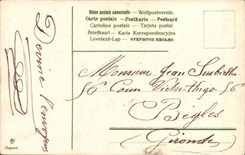 Union postale universelle — Weltpostverein.
Carte postale — Postkarte — Postcard
Cartolina postale — Tarjeta postal
Briefkaart — Karta Korespondencyjna
Levelező-Lap — ОТКРЫТОЕ ПИСЬМО
Monsieur Jean
56 Cours Victor Hugo 56
Bègles
Gironde